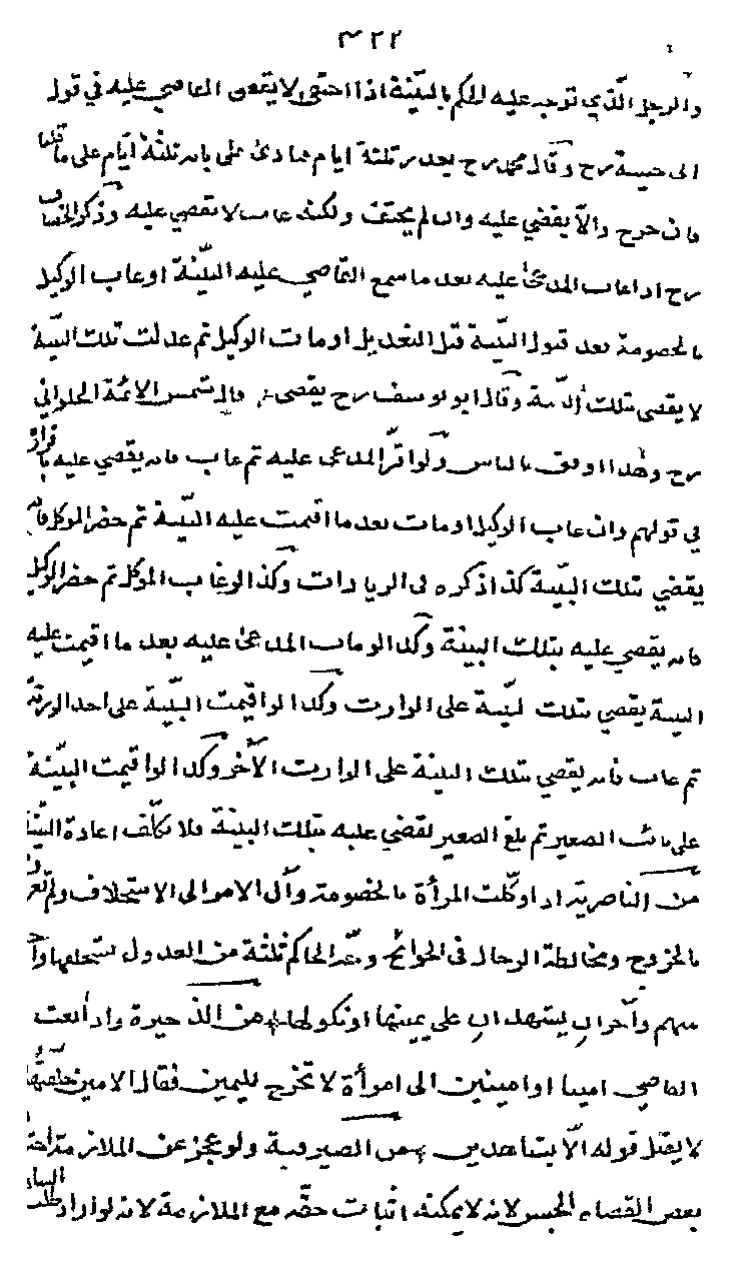 ٣٢٢
والرجل الذي توجه عليه الحكم بالبيّنة اذا اختفى لا يقضي القاضي عليه في قول
ابى حنيفة رح وقال محمد رح بعد ثلثة ايام ينادى على بابه ثلثة ايّام على ما قلنا
فان خرج والّا يقضي عليه وان لم يختف ولكنه غاب لا يقضي عليه وذكر الخصاف
رح اذا غاب المدعى عليه بعد ما سمع القاضي عليه البيّنة او غاب الوكيل
بالخصومة بعد قبول البيّنة قبل التعديل او مات الوكيل ثم عدلت تلك البيّنة
لا يقضي بتلك البيّنة وقال ابو يوسف رح يقضي قال شمس الائمّة الحلواني
رح وهذا اوفق بالناس ولو اقرّ المدعى عليه ثم غاب فانه يقضي عليه باقراره
في قولهم وان غاب الوكيل او مات بعد ما اقيمت عليه البيّنة ثم حضر الموكل فانه
يقضي بتلك البيّنة كذا ذكره في الزيادات وكذا لو غاب الموكل ثم حضر الوكيل
فانه يقضي عليه بتلك البينة وكذا لو مات المدعى عليه بعد ما اقيمت عليه
البينة يقضي بتلك البيّنة على الوارث وكذا لو اقيمت البيّنة على احد الورثة
ثم غاب فانه يقضي بتلك البينة على الوارث الآخر وكذا لو اقيمت البيّنة
على نائب الصغير ثم بلغ الصغير يقضي عليه بتلك البينة ولا يكلّف اعادة البيّنة
من الناصرية اذا وكّلت المرأة بالخصومة وآل الامر الى الاستحلاف ولم تعرف
بالخروج ومخالطة الرجال في الحوائج وجّه الحاكم ثلثة من العدول يستحلفها واحد
منهم وآخران يشهدان على يمينها او نكولها من الذخيرة واذا بعث
القاضي امينا او امينين الى امرأة لا تخرج لليمين فقال الامين حلّفتها
لا يقبل قوله الّا بشاهدين من الصيرفية ولو عجز عن الملازمة
بعض القضاء الحبس لانه لا يمكنه اثبات حقّه مع الملازمة لانه لو اراد طلب